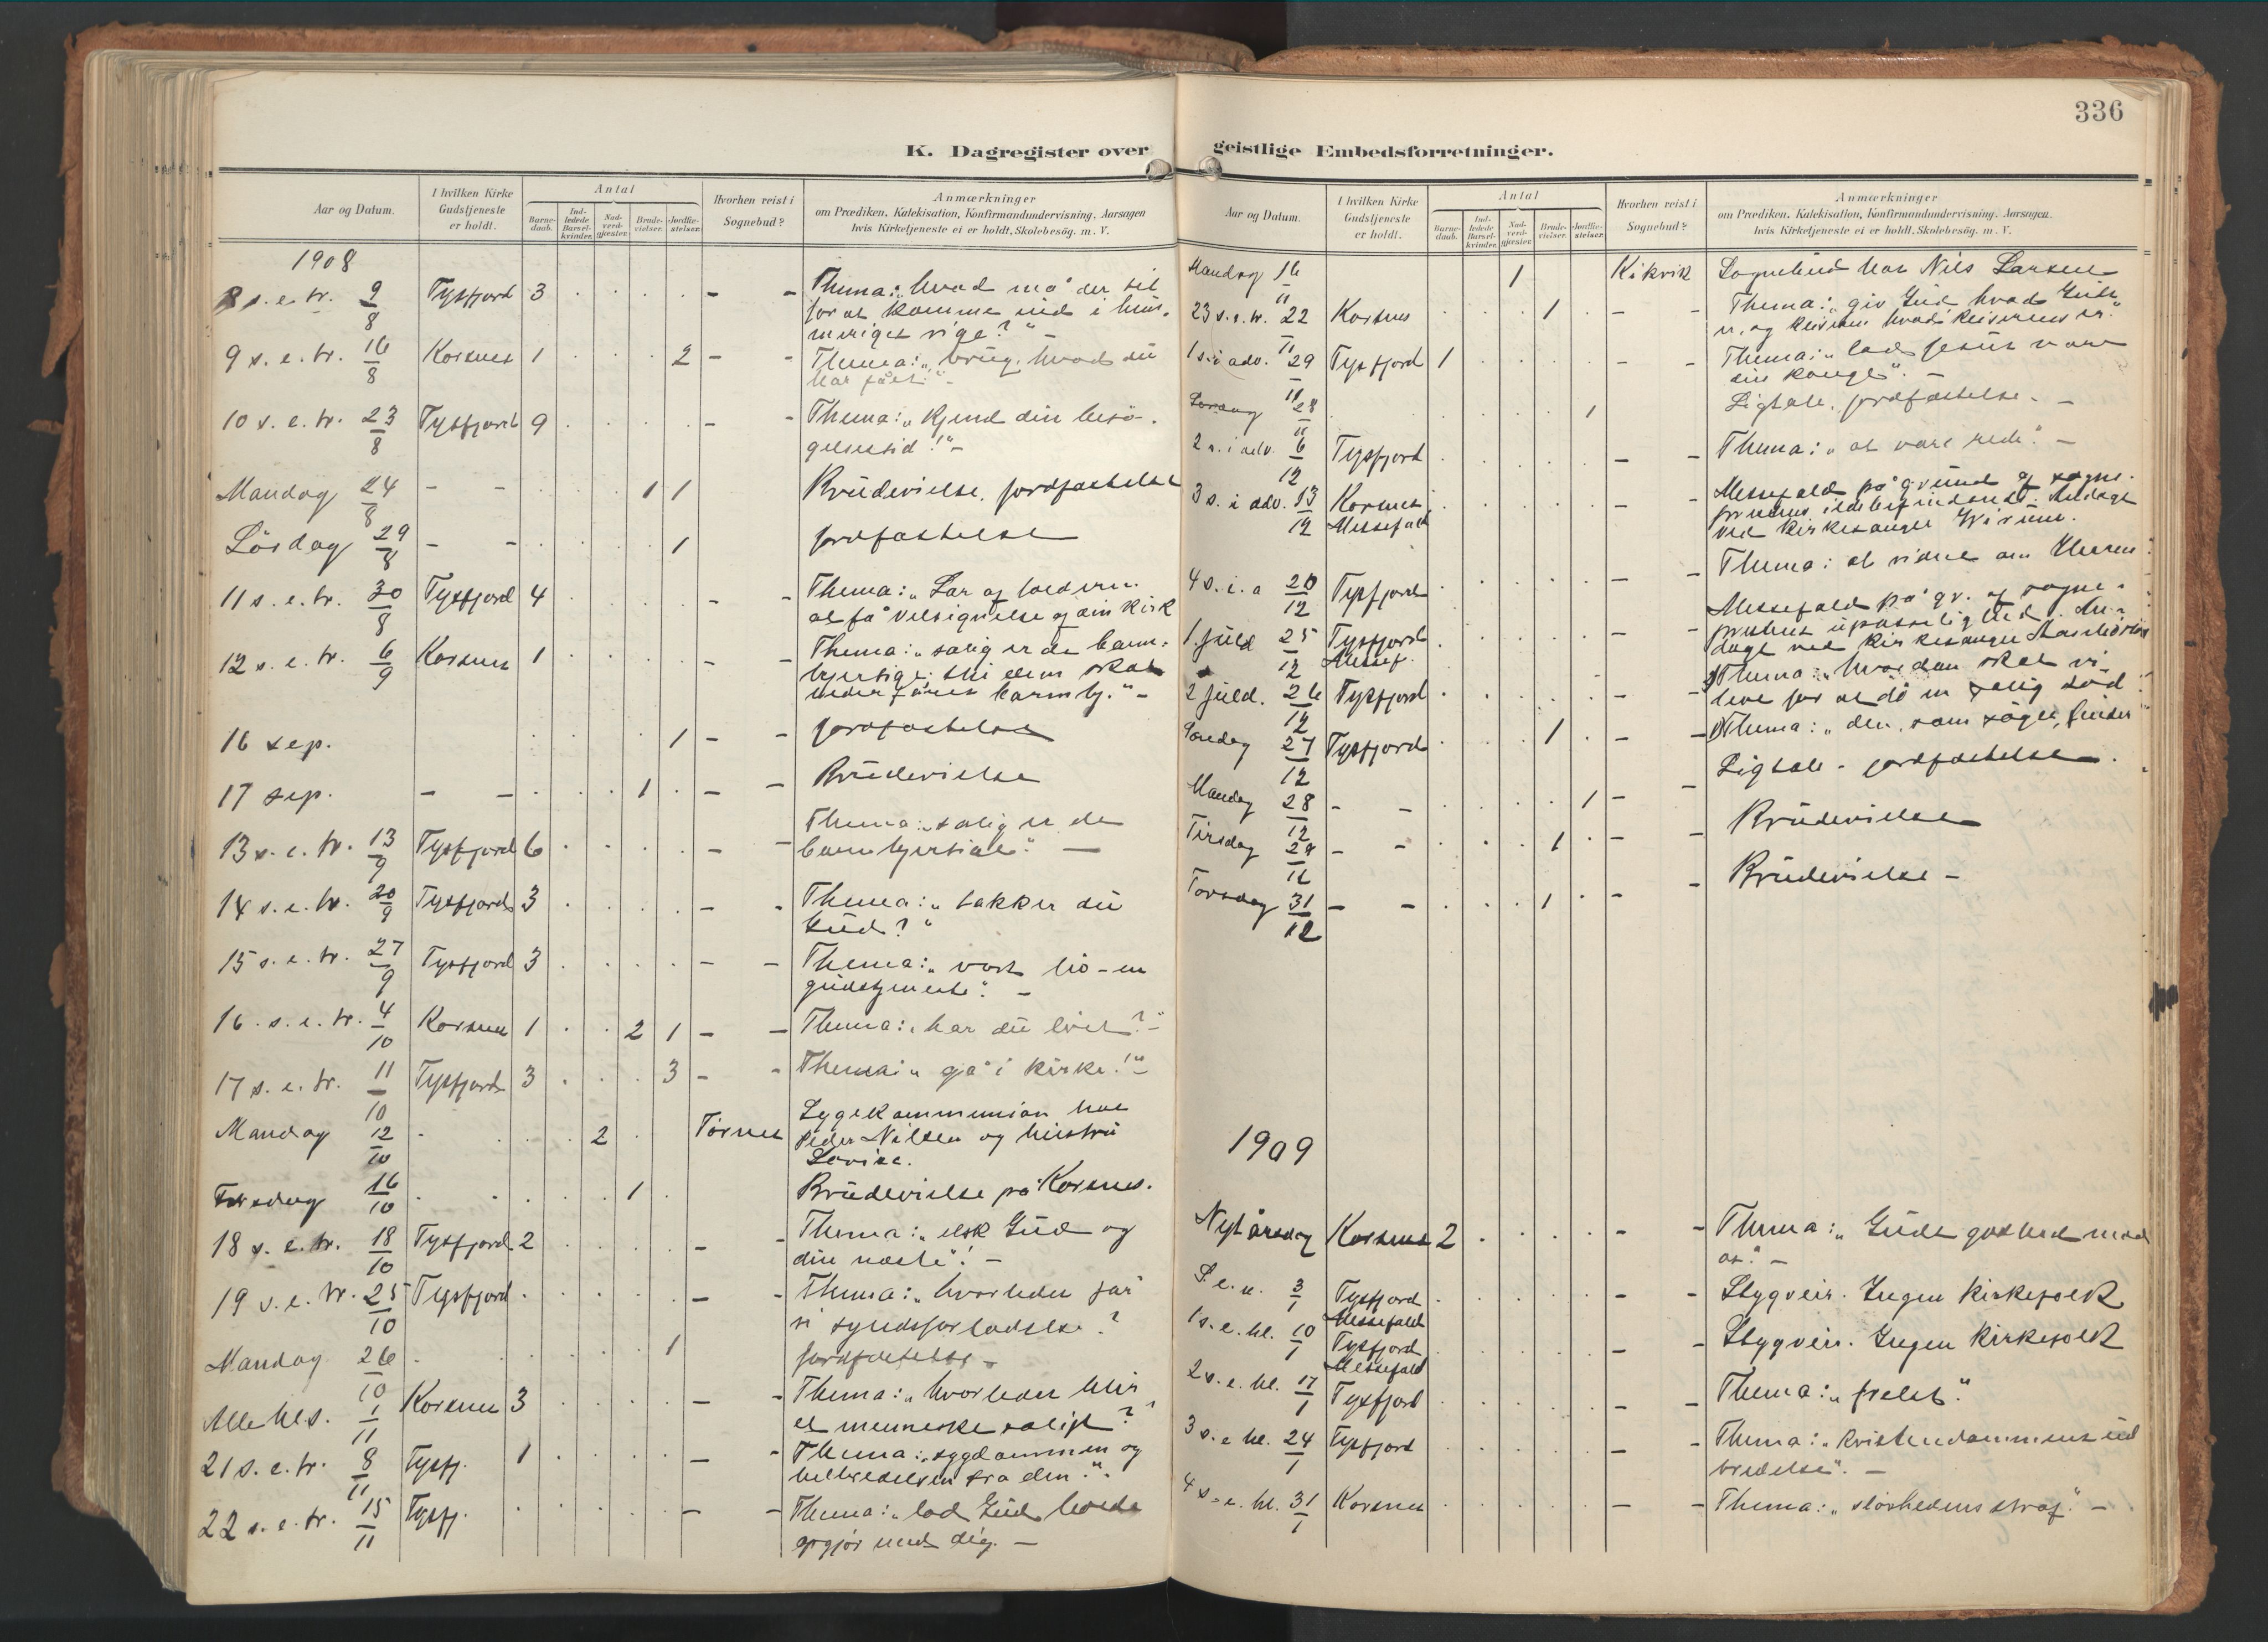 336
K. Dagregister over geistlige Embedsforretninger.
Aar og Datum.
I hvilken Kirke Gudstjeneste er holdt.
Antal
Barne-daab.
Ind-ledede Barsel-kvinder.
Nad-verd-gjæster.
Brude-vielser.
Jordfæ-stelser.
Hvorhen reist i Sognebud?
Anmærkninger
om Prædiken, Katekisation, Konfirmandundervisning, Aarsagen
hvis Kirketjeneste ei er holdt, Skolebesøg. m. V.
1908
8 s. e. tr. 9/8 Tysfjord 3 . . . . - - Thema: "hvad må der til
for at komme ind i him-
meriges rige?" -
9 s. e. tr. 16/8 Korsnes 1 . . . 2 - - Thema: "brug, hvad du
har fået." -
10 s. e. tr. 23/8 Tysfjord 9 . . . . - - Thema: "Kjend din besø-
gelsestid!" -
Mandag 24/8 - - . . . 1 1 Brüdevielse, jordfæstelse
Lørdag 29/8 - - . . . . 1 jordfæstelse
11 s. e. tr. 30/8 Tysfjord 4 . . . . - - Thema: "Lær af tolderen
at få velsignelse af din kirk
12 s. e. tr. 6/9 Korsnes 1 . . . . - - Thema: "salig er de barm-
hjertige; thi dem skal
vederfares barmhj." -
16 sep. . . . . 1 - - jordfæstelse
17 sep. - - . . . 1 . - - Brüdevielse
13 s. e. tr. 13/9 Tysfjord 6 . . . . - - Thema: "salig er de
barmhjertige." -
14 s. e. tr. 20/9 Tysfjord 3 . . . . - - Thema: "takker du
Gud?"
15 s. e. tr. 27/9 Tysfjord 3 . . . . - - Thema: "vort liv - en
gudstjeneste". -
16. s. e. tr. 4/10 Korsnes 1 . . 2 1 - - Thema: "har du livet?" -
17 s. e. tr. 11/10 Tysfjord 3 . . . 3 - - Thema: "gå i kirke!" -
Mandag 12/10 . . . 2 . Tørnes Sygekommunion hos
Peder Nilsen og hustru
Lovise.
Torsdag 16/10 . . . . . 1 . Brüdevielse på Korsnes.
18 s. e. tr. 18/10 Tysfjord 2 . . . . - - Thema: "elsk Gud og
din næste"! -
19 s. e. tr. 25/10 Tysfjord . . . . . - - Thema: "hvorledes får
vi syndsforladelse?
Mandag 26/10 . . . . . 1 jordfæstelse
Alle hls. 1/11 Korsnes 3 . . . . - - Thema: "hvorledes blir
et menneske saligt?"
21 s. e. tr. 8/11 Tysfj. 1 . . . . - - Thema: "sygdommen og
helbredelsen fra den."
22 s. e. tr. 15/11 Tysfj. . . . . . - - Thema: "lad Gud holde
opgjør med dig. -
Mandag 16/11 . . 1 Kikvik Sognebud hos Nils Larsen
23 s. e. tr. 22/11 Korsnes . . . 1 . - - Thema: "giv Gud hvad Guds
er, og keiseren hvad keiserens er."
1 s. i adv. 29/11 Tysfjord 1 . . . . - - Thema: "lad Jesus være
din konge". -
28/11 . . . . 1 Ligtale, jordfæstelse. -
2 s. i adv. 6/12 Tysfjord . . . . . - - Thema: "at være rede". -
3 s. i adv. 13/12 Korsnes Messefald . . . . . - - Messefald på grund af sogne-
prestens ildebefindende. Andagt
ved kirkesanger
4 s. i. a 20/12 Tysfjord . . . . . - - Thema: at vidne om Herren
1. juld 25/12 Tysfjord Messef. . . . . . - - Messefald på gr. af sogne-
prestens upasselighed. An-
dagt ved kirkesanger
2 juld. 26/12 Tysfjord . . . . . - - Thema: "hvordan skal vi
leve for at dø en salig død
Søndag 27/12 Tysfjord . . . 1 . - - Thema: "den, som søger, finder"
Mandag 28/12 - - . . . . 1 - - Ligtale - jordfæstelse.
Tirsdag 29/12 - - . . . 1 . - - Brüdevielse
Torsdag 31/12 - - . . . 1 . - - Brüdevielse -
1909
Nytårsdag Korsnes 2 . . . . - - Thema: "Guds godhed mod
os." -
S. e. n. 3/1 Tysfjord Messefald . . . . . - - Stygveir. Ingen kirkefolk
1 s. e. hl. 10/1 Tysfjord Messefald . . . . . - - Stygveir. Ingen kirkefolk
2 s. e. hl. 17/1 Tysfjord . . . . . - - Thema: "frelst".
3 s. e hl. 24/1 Tysfjord . . . . . - - Thema: "Kristendommens ud
bredelse". -
4 s. e. hl. 31/1 Korsnes . . . . . - - Thema: "sløvhedens straf." -